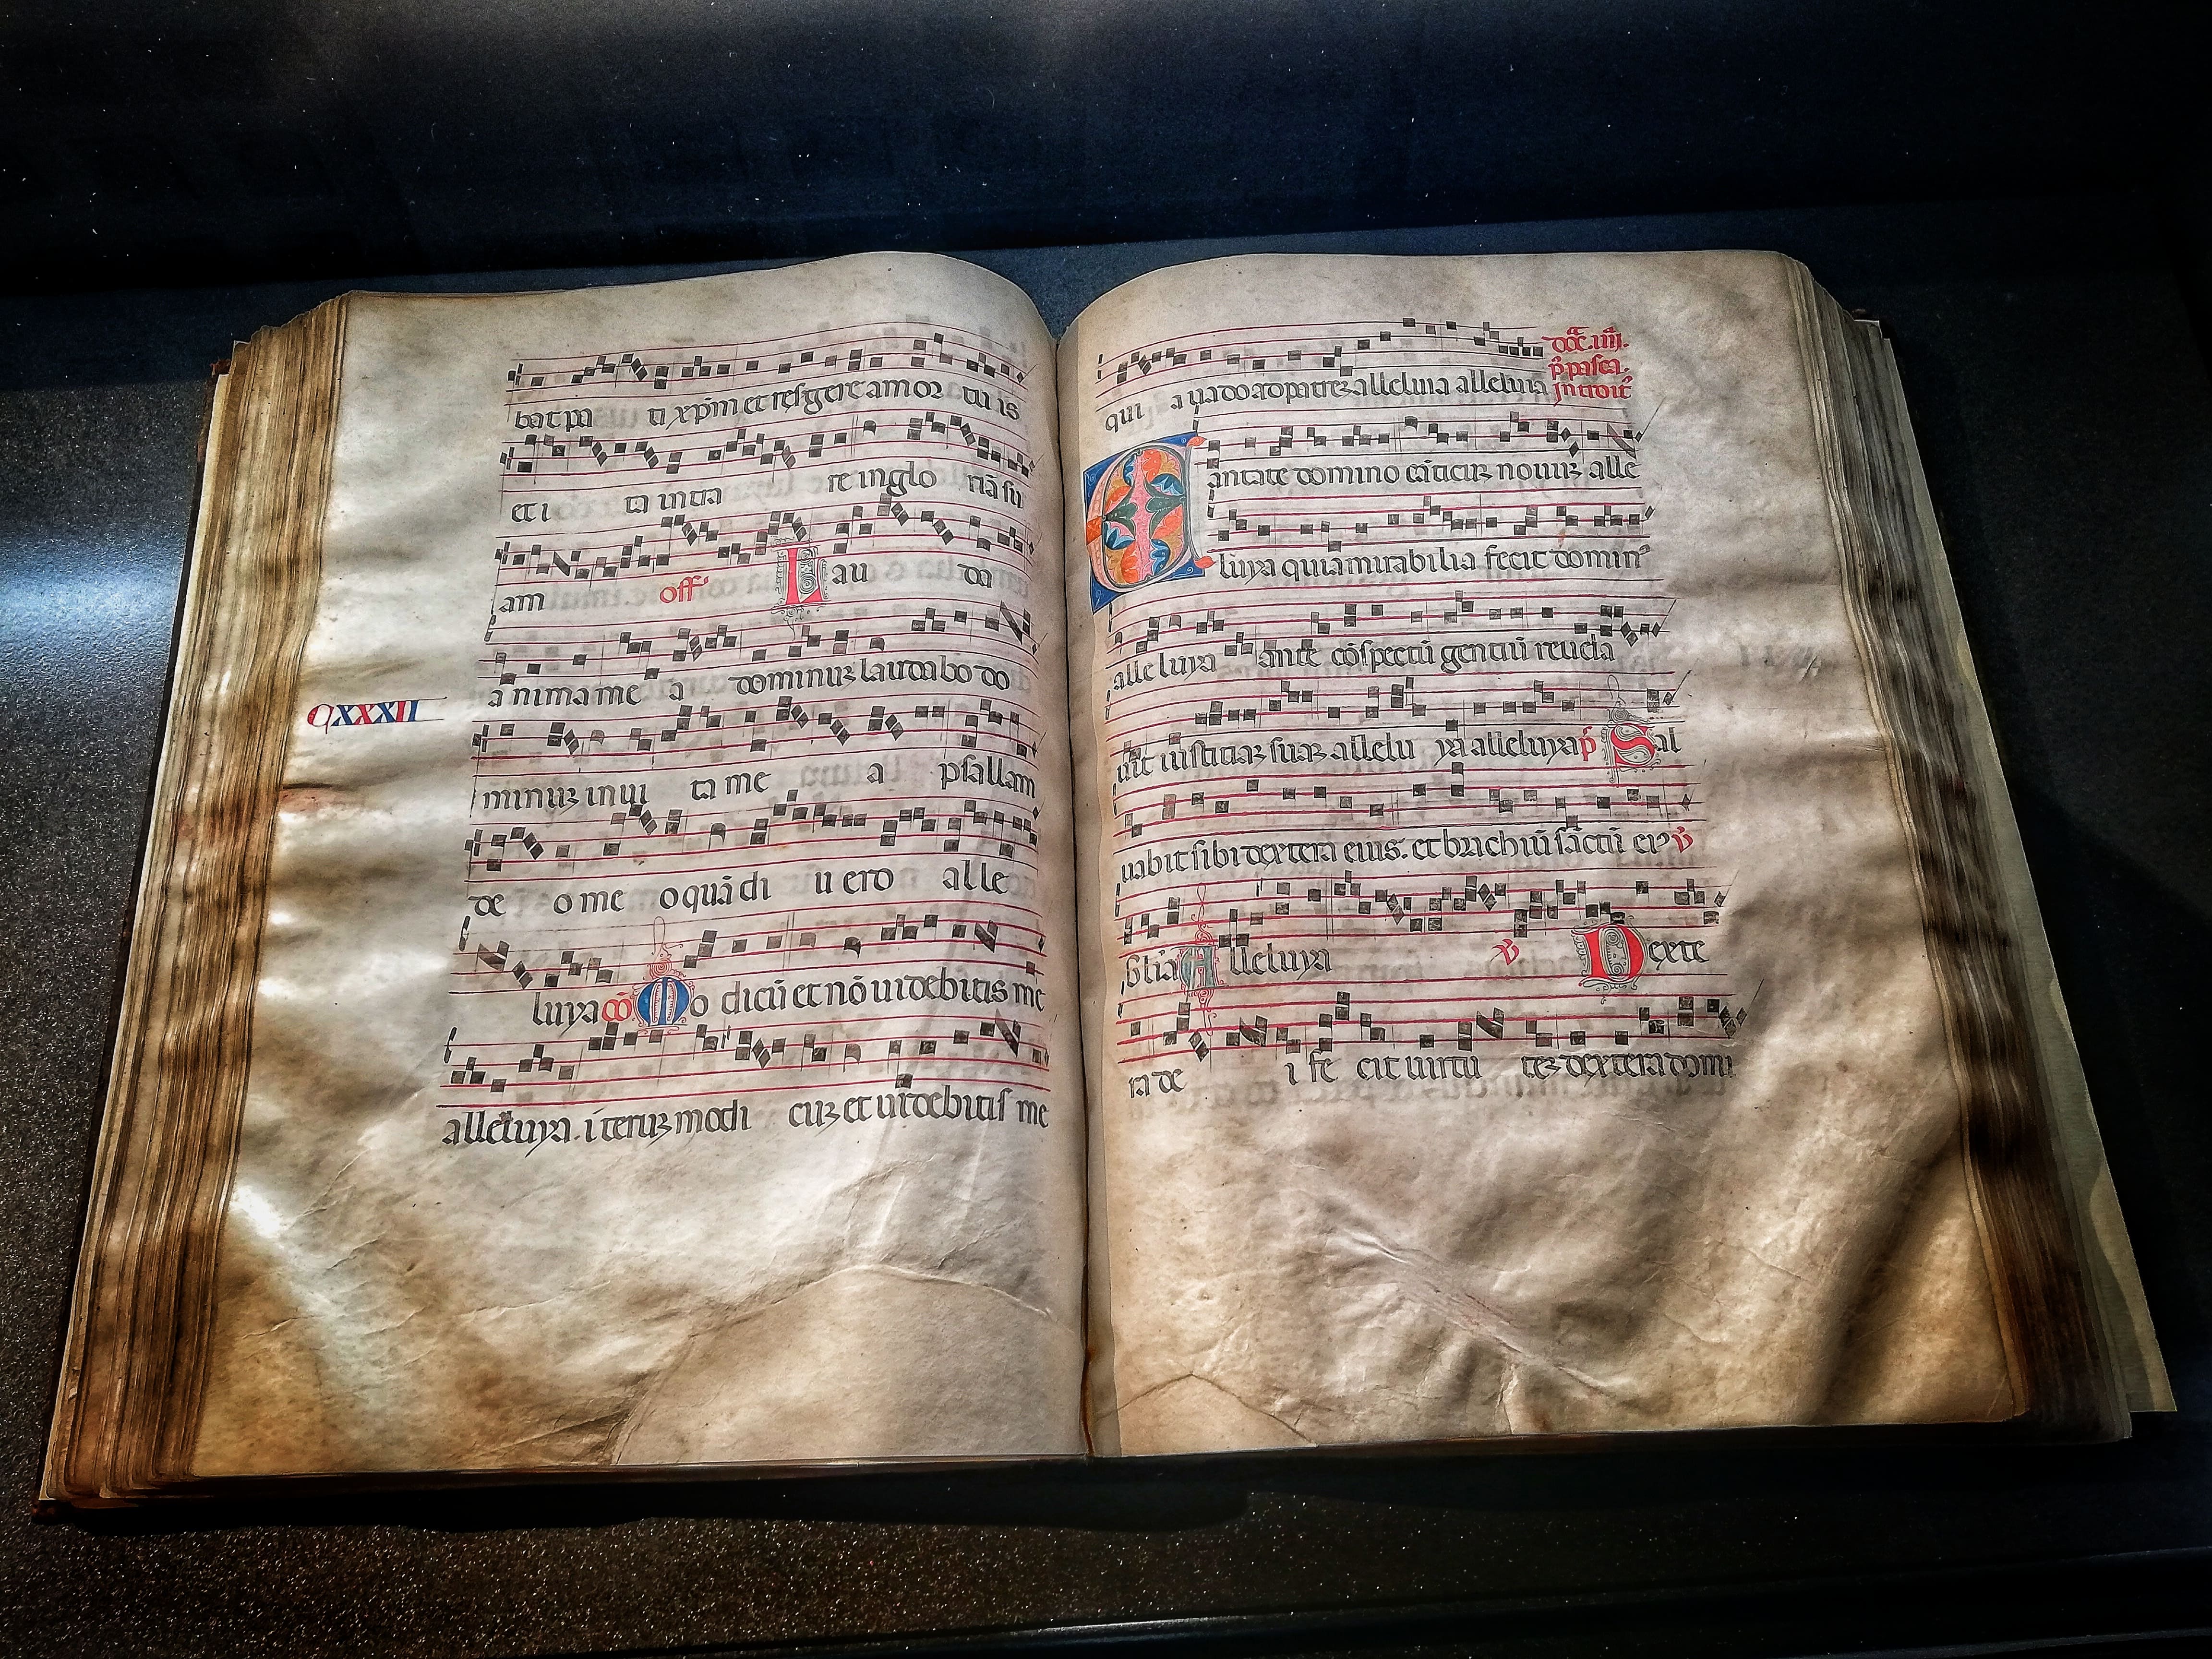 bat pa ti xp̄m et resurgere a mor tu is
et i ta intra re in glo riā su
am off' Lau da
a nima me a dominuꝫ laudabo do
CXXXII
minuꝫ in ui ta me a psallam
de o me o quādi u ero alle
luya cō Mo dicū et nō uidebitis me
alleluya. iteruꝫ modi cuꝫ et uidebitis me
qui a uado ad patreꝫ alleluia alleluia
doc̄. iiij.
p̄ pasca.
Introit̄
Cantate domino cāticuꝫ nouuꝫ alle
luya quia mirabilia fecit domin⁹
alleluya ante cōspectū gentiū reuela
uit iusticiaꝫ suaꝫ allelu ya alleluya p̄ Sal
uabit sibi dextera eius. et brachiū sāctū ei⁹ v̄
Gl̄ia Alleluya v̄ Dexte
ra de i fe cit uirtu teꝫ dextera domi